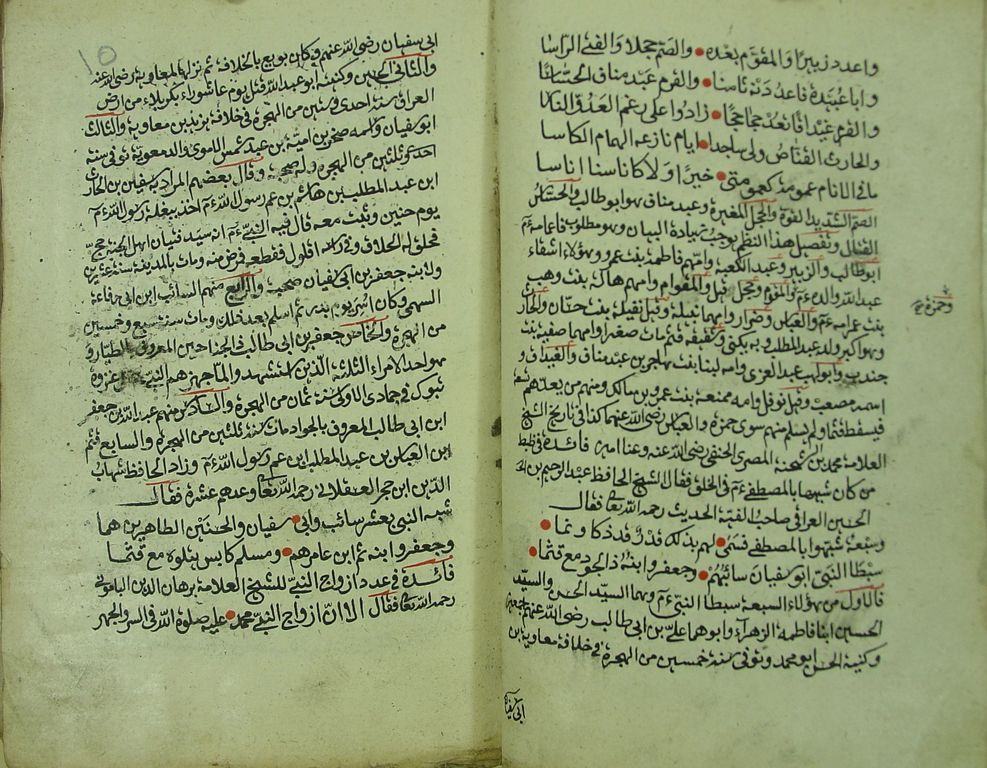 واعدد زبيرًا والمقوّم بعده والصتم حجلا والفتى الراسا
وابا عبيدة فاعددنه ثامنا والقرم عبد مناف الجساسا
والقرم غيداقا نعد جحاجحا زادوا على رغم العدو الناسا
والحارث الفياض ولى ماجدا ايام نازعه الهمام الكاسا
ما فى الانام عمومة كعمومتى خيرا ولا كاناسنا اناسا
الصتم الشديد القوة والحجل المغيرة وعبد مناف هو ابو طالب والجساس
القتال وتفصيل هذا النظم يوجب زيادة البيان وهو مطلوب فاعمامه عم
ابو طالب والزبير وعبد الكعبة وامهم فاطمة بنت عمرو وهؤلاء اشقاء
عبد الله والده عم وحجل قيل والمقوم وامهم هالة بنت وهيب
والعباس وضرار وامهما نتيلة وقيل نفيلة بنت جناب والحارث
وهو اكبر ولد عبد المطلب وبه يكنى وشقيقه قثم مات صغيرا وامهما صفية بنت
جندب وابو لهب عبد العزى وامه لبنا بنت هاجر بن عبد مناف والغيداق و
اسمه مصعب وقيل نوفل وامه ممنعة بنت عمرو بن مالك ومنهم من يعدهم تسعة
فيسقط قثما ولم يسلم منهم سوى حمزة والعباس رضى الله عنهما كذا فى تاريخ الشيخ
العلامة محمد بن شحنه المصرى الحنفى رضى الله عنه وعنا امين فائدة فى ضبط
من كان شبيها بالمصطفى عم فى الخلق فقال الشيخ الحافظ عبد الرحيم بن
الحسين العراقى صاحب الفية الحديث رحمه الله تعالى فقال
وسبعة شبهوا بالمصطفى فسمى لهم بذلك قدر قد ذكا ونما
سبطا النبى ابو سفيان سائبهم وجعفر وابنه ذا الجود مع قثما
فالاول من هؤلاء السبعة سبطا النبى عم وهما السيد الحسن والسيد
الحسين ابنا فاطمة الزهراء وابوهما على بن ابى طالب رضى الله عنهم اجمعين
وكنية الحسن ابو محمد وتوفى سنة خمسين من الهجرة فى خلافة معاوية بن
وحمزة صح
ابى سفيان
١٥
ابى سفيان رضى الله عنهم وكان بويع بالخلافة ثم نزل لمعاوية رضى الله عنه
والثانى الحسين وكنيته ابو عبد الله قتل يوم عاشوراء بكربلاء من ارض
العراق سنة احدى وستين من الهجرة فى خلافة يزيد بن معاوية والثالث
ابو سفيان واسمه صخر بن امية بن عبد شمس الاموى والد معوية توفى سنة
احد وثلثين من الهجرة وله صحبة وقال بعضهم المراد به سفين بن الحارث
ابن عبد المطلب بن هاشم بن عم رسول الله عم اخذ ببغلة رسول الله عم
يوم حنين وثبت معه قال فيه النبى عم انه سيد فتيان اهل الجنة حج
فحلق له الحلاق وفى راسه اقلول فقطعه فمرض منه ومات بالمدينة سنة عشرين
ولابنه جعفر بن ابى سفيان صحبة والرابع منهم السائب ابن ابى وداعة
السهمى وكان اسر يوم بدر ثم اسلم بعد ذلك ومات سنة سبع وخمسين
من الهجرة والخامس جعفر بن ابى طالب ذى الجناحين المعروف بالطيار و
هو احد الامراء الثلاثة الذين استشهد والما جهزهم النبى عم غزوة
تبوك فى جمادى الاولى سنة ثمان من الهجرة والسادس منهم عبد الله بن جعفر
ابن ابى طالب المعروف بالجواد مات سنة ثلثين من الهجرة والسابع قثم
ابن العباس بن عبد المطلب ابن عم رسول الله عم وزاد الحافظ شهاب
الدين ابن حجر العسقلانى رحمه الله تعالى وعدهم عشرة فقال
شبه النبى بعشر سائب وابى سفيان والحسنين الطاهرين هما
وجعفر وابنه ثم ابن عامرهم ومسلم كابس يتلوه مع قثما
فائدة فى عدد ازواج النبى للشيخ العلامة برهان الدين الباعونى
رحمه الله تعالى فقال الا ان ازواج النبى محمد عليه صلوة الله فى السر والجهر